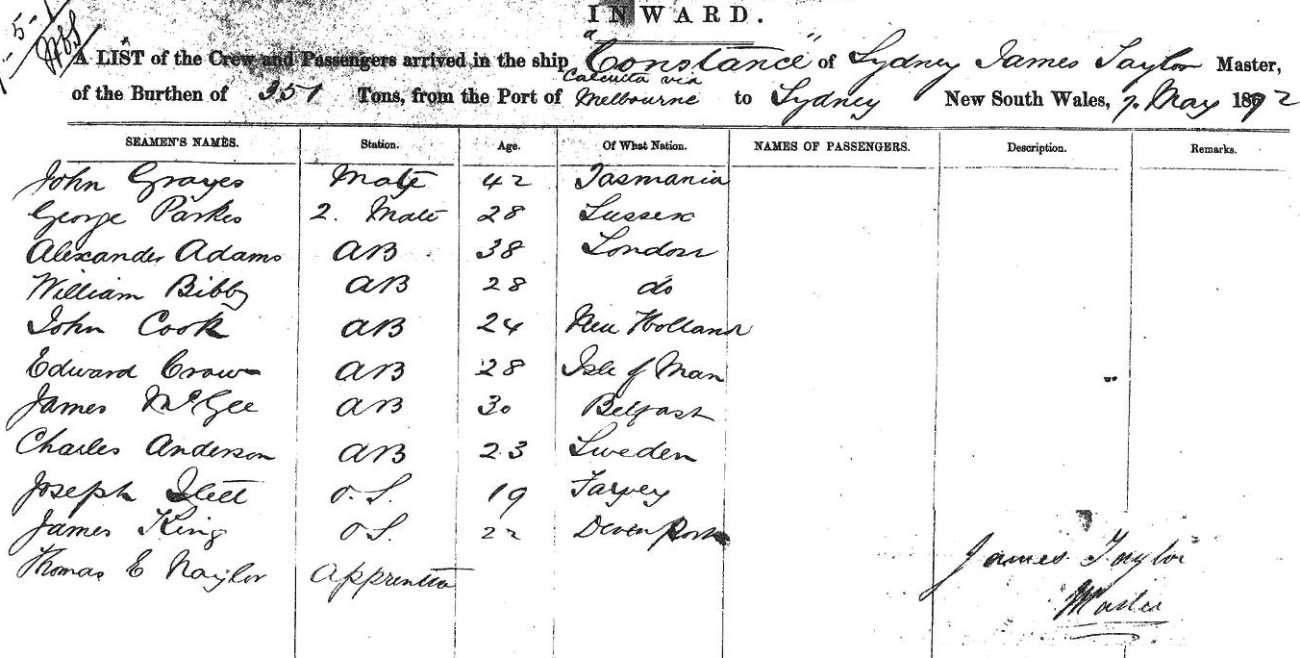 INWARD.
A LIST of the Crew and Passengers arrived in the ship "Constance" of Sydney James Taylor Master,
Calcutta via
of the Burthen of 351 Tons, from the Port of Melbourne to Sydney New South Wales, 7 May 1872
SEAMEN'S NAMES. Station. Age. Of What Nation. NAMES OF PASSENGERS. Description. Remarks.
John Graves Mate 42 Tasmania
George Parkes 2. Mate 28 Sussex
Alexander Adams AB 38 London
William Bibby AB 28 do
John Cook AB 24 New Holland
Edward AB 28 Isle of Man
James McGee AB 30 Belfast
Charles Anderson AB 23 Sweden
Joseph O.S. 19
James King O.S. 22 Devenport
Thomas E Naylor Apprentice
James Taylor
Master